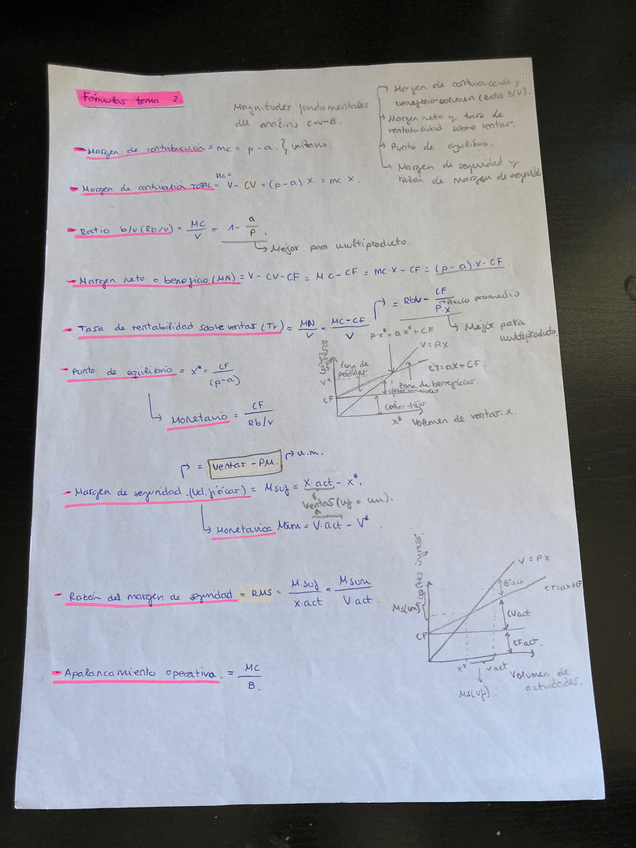 Fórmulas tema 2
Magnitudes fundamentales
del análisis C-V-B.
- Margen de contribución y
beneficio-volumen (Ratio B/V)
Margen neto y tasa de
rentabilidad sobre ventas.
Punto de equilibrio.
Margen de seguridad y
razón de margen de seguridad
- Margen de contribución = mc = p - a. } unitario.
- Margen de contribución TOTAL = MC = V - CV = (p-a) X = mc X.
- Ratio b/v (Rb/v) = MC/V = 1 - a/p.
→ Mejor para multiproducto.
- Margen neto o beneficio (MN) = V - CV - CF = MC - CF = mc·X - CF = (p-a)·X - CF
- Tasa de rentabilidad sobre ventas (Tr) = MN/V = MC-CF/V = Rb/v - CF/P·X
→ Mejor para
multiproducto
- Punto de equilibrio = X* = CF/(p-a)
→ Monetario = CF/Rb/v
P·X* = a X* + CF
V = PX
CT = aX + CF
Zona de
pérdidas
Zona de beneficios
CF
X*
Volumen de ventas: X.
= Ventas - PM → u.m.
- Margen de seguridad (Ud. físicas) = Msuf = X·act - X*.
Ventas (uf = um).
→ Monetario = Msum = V·act - V*
- Razón del margen de seguridad = RMS = Msuf/X·act = Msum/V·act
costes ingresos
V = PX
B°act
Ms(um)
CVact
CF
CFact
X*
Vact
Volumen de
actividades.
Ms(uf)
- Apalancamiento operativa = MC/B.